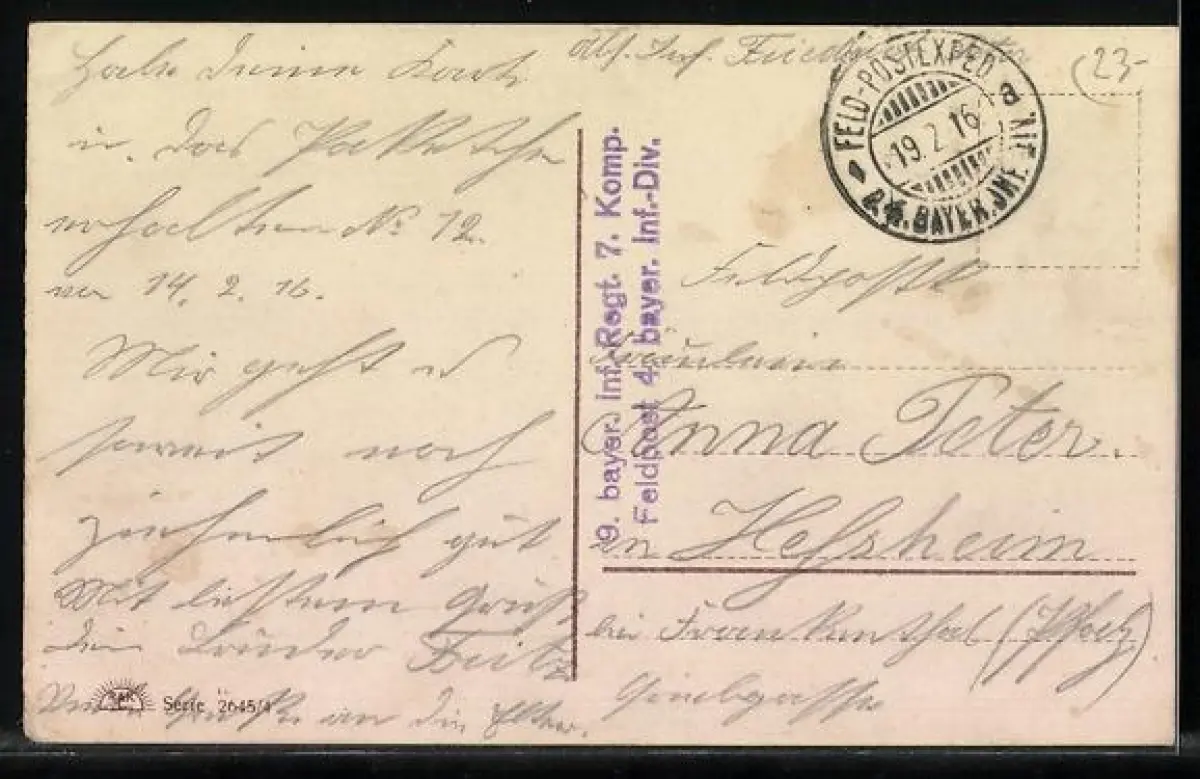 Habe Deine Karte
u. das Paketchen
erhalten No 12.
vom 14. 2. 16.
Mir geht es
soweit noch
ziehmlich gut
Mit bestem Gruß
dein Bruder Fritz
Gruß an die Eltern.
Serie 2645/4
Abs. Inf. Friedrich
23-
FELD-POSTEXPED
a
19. 2. 16
D. 4. BAYER. INF. DIV.
9. bayer. Inf.-Regt. 7. Komp.
Feldpost 4. bayer. Inf.-Div.
Feldpostk
Fräulein
Anna Peter.
in Heßheim
bei Frankenthal (Pfalz)